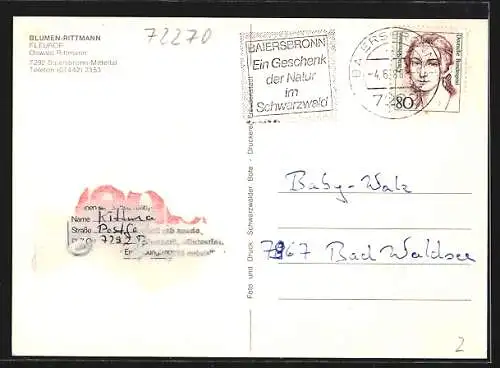 BLUMEN-RITTMANN
FLEUROP
Oswald Rittmann
7292 Baiersbronn-Mitteltal
Telefon (07442) 2353
72270
BAIERSBRONN
Ein Geschenk
der Natur
im
Schwarzwald
Deutsche Bundespost
80
Foto und Druck: Schwarzwälder Bote - Druckerei
Name
Straße
7292 B
Baby-Walz
7967 Bad Waldsee
2